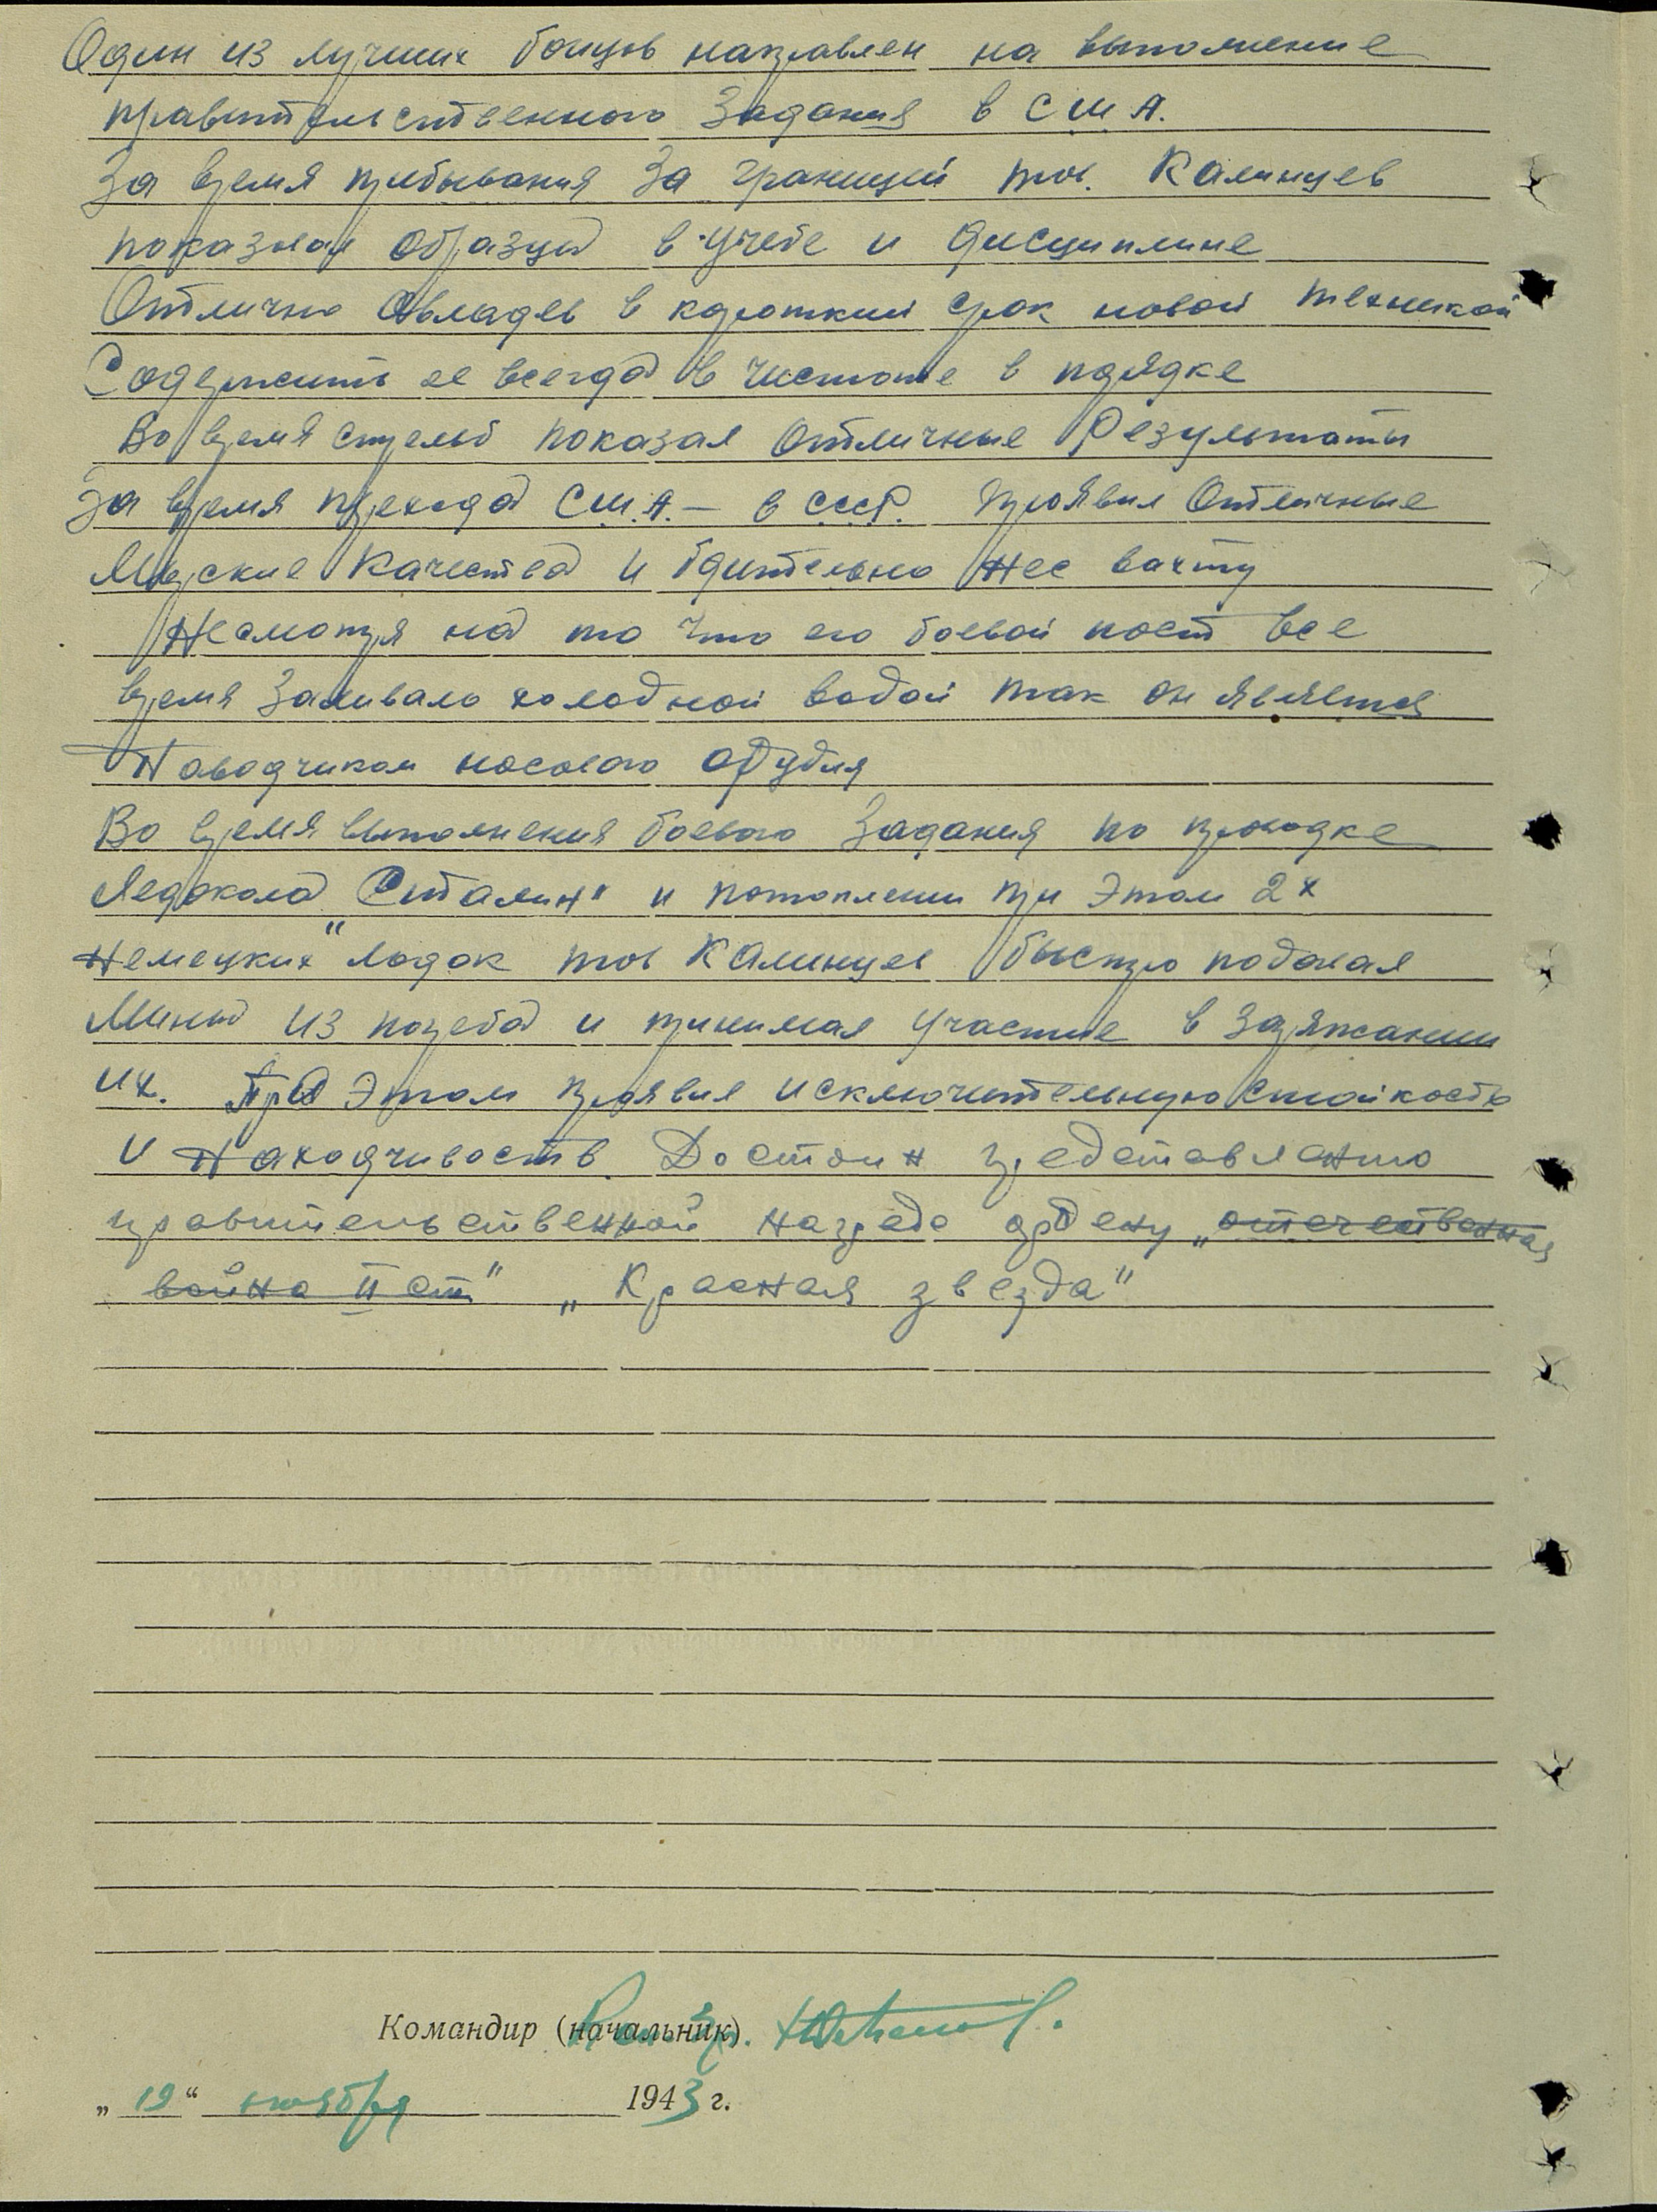 Один из лучших бойцов направлен на выполнение
правительственного Задания в США.
За время пребывания За границей тов. Калинцев
показывал Образцы в учебе и дисциплине
Отлично Овладев в короткий срок новой техникой
Содержить ее всегда в чистоте в порядке
Во время стрельб показал Отличные Результаты
За время перехода С.Ш.А. — в СССР. проявил Отличные
Морские Качества и бдительно Нес вахту
Несмотря на то что его боевой пост все
время Заливало холодной водой так он является
Наводчиком носового Орудия
Во время выполнения боевого Задания по проводке
Ледокола „Сталин" и потоплении при Этом 2х
Немецких лодок тов Калинцев быстро подавал
Мины из погреба и принимал участие в Заряжании
их. При Этом проявил исключительную Стойкость
и Находчивость. Достоин представлению
правительственной награде ордену „отечественная
война II ст" „Красная звезда"
Командир (начальник)
„19“ ноября 1943 г.